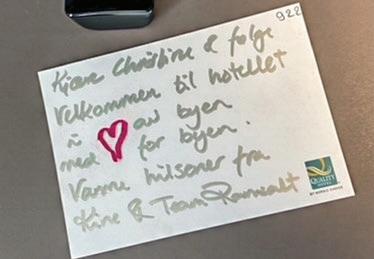 922
Kjære Christine & følge
Velkommen til hotellet
i ♥ av byen
med for byen.
Varme hilsener fra
Kine & Team Ramsalt
QUALITY
HOTEL
BY NORDIC CHOICE